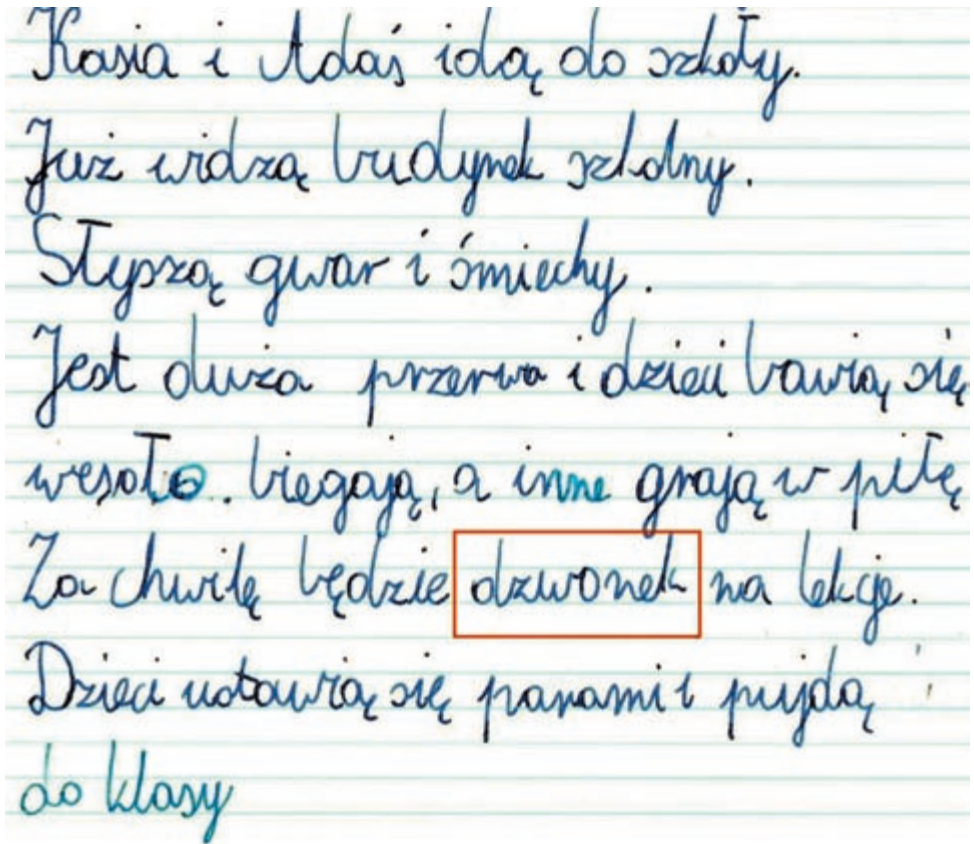 Kasia i Adaś idą do szkoły.
Już widzą budynek szkolny.
Słyszą gwar i śmiechy.
Jest duża przerwa i dzieci bawią się
wesoło. biegają, a inne grają w piłę
Za chwilę będzie dzwonek na lekcje.
Dzieci ustawią się parami i pujdą
do klasy